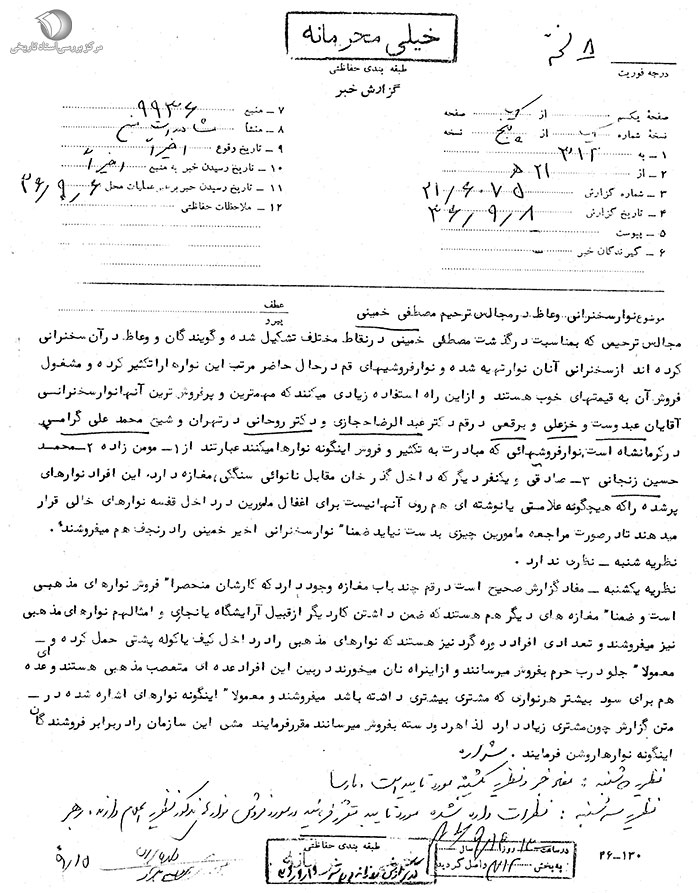 مرکز بررسی اسناد تاریخی
خیلی محرمانه
طبقه بندی حفاظتی
گزارش خبر
درجه فوریت
صفحهٔ یکم از صفحه
نسخهٔ شماره از پنج نسخه
۱ ــ به ۳۱۲
۲ ــ از ۲۱ ه
۳ ــ شماره گزارش ۲۱/۶۰۷۵
۴ ــ تاریخ گزارش ۳۶/۹/۸
۵ ــ پیوست
۶ ــ گیرندگان خبر
۷ ــ منبع ۹۹۳۶
۸ ــ منشأ
۹ ــ تاریخ وقوع اخیراً
۱۰ ــ تاریخ رسیدن خبر به منبع اخیراً
۱۱ ــ تاریخ رسیدن خبر به رهبر عملیات محل ۳۶/۹/۶
۱۲ ــ ملاحظات حفاظتی
موضوع نوار سخنرانی وعاظ در مجالس ترحیم مصطفی خمینی
عطف
پیرو
مجالس ترحیمی که بمناسبت درگذشت مصطفی خمینی در نقاط مختلف تشکیل شده و گویندگان و وعاظ در آن سخنرانی
کرده اند از سخنرانی آنان نوار تهیه شده و نوار فروشیهای قم در حال حاضر مرتب این نوارها را تکثیر کرده و مشغول
فروش آن به قیمتهای خوب هستند و از این راه استفاده زیادی میکنند که مهمترین و پرفروش ترین آنها نوار سخنرانی
آقایان عبد وست و خزعلی و برقعی در قم دکتر عبد الرضا حجازی و دکتر روحانی در تهران و شیخ محمد علی گرامی
در کرمانشاه است، نوار فروشیهائی که مبادرت به تکثیر و فروش اینگونه نوارها میکنند عبارتند از ۱ــ مومن زاده ۲ــ محمد
حسین زنجانی ۳ــ صادقی و یکنفر دیگر که داخل گذر خان مقابل نانوائی سنگکی مغازه دارد. این افراد نوارهای
پر شده را که هیچگونه علامتی یا نوشته ای هم روی آنها نیست برای اغفال مامورین در داخل قفسه نوارهای خالی قرار
میدهند تا در صورت مراجعه مامورین چیزی بدست نیاید ضمنا" نوار سخنرانی اخیر خمینی را در نجف هم میفروشند.
نظریه شنبه ــ نظری ندارد .
نظریه یکشنبه ــ مفاد گزارش صحیح است در قم چند باب مغازه وجود دارد که کارشان منحصرا" فروش نوارهای مذهبی
است و ضمنا" مغازه های دیگر هم هستند که ضمن داشتن کار دیگر از قبیل آرایشگاه یا نجاری و امثالهم نوارهای مذهبی
نیز میفروشند و تعدادی افراد دوره گرد نیز هستند که نوارهای مذهبی را در داخل کیف یا کوله پشتی حمل کرده و ــ
معمولا" جلو درب حرم بفروش میرسانند و از اینراه نان میخورند در بین این افراد عده ای متعصب مذهبی هستند و عده ای
هم برای سود بیشتر هر نواری که مشتری بیشتری داشته باشد میفروشند و معمولا" اینگونه نوارهای اشاره شده در ــ
متن گزارش چون مشتری زیاد دارد لذا هر دو دسته بفروش میرسانند مقرر فرمایند مشی این سازمان را در برابر فروشندگان
اینگونه نوارها روشن فرمایند .
نظریه دوشنبه : مفاد خبر و نظریه یکشنبه مورد تایید است . پارسا
نظریه سه شنبه : نظرات داده شده مورد تایید مقرر فرمائید در مورد فروش نوارهای مذکور نظریه اعلام دارند . رهبر
طبقه بندی حفاظتی
در ساعت روز سال
به بخش ۳۱۲ داخل گردید
۴۶-۱۲۰
۹/۱۵